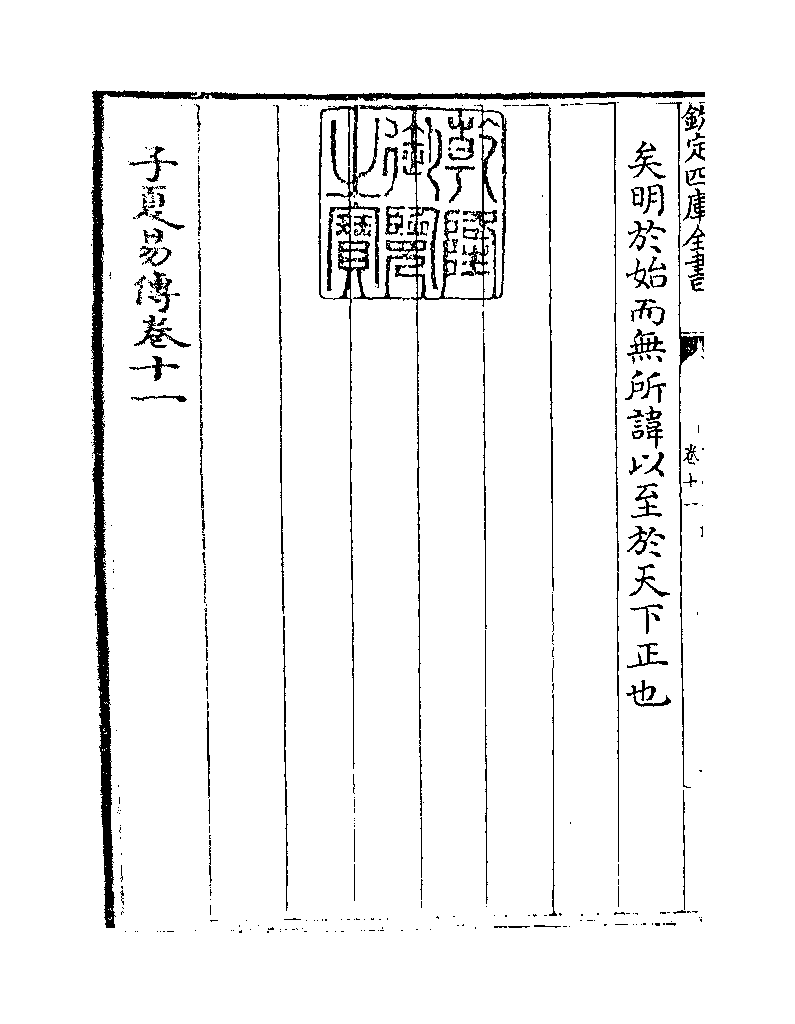 欽定四庫全書
卷十一
矣明於始而無所諱以至於天下正也
乾隆
御覽
之寶
子夏易傳卷十一